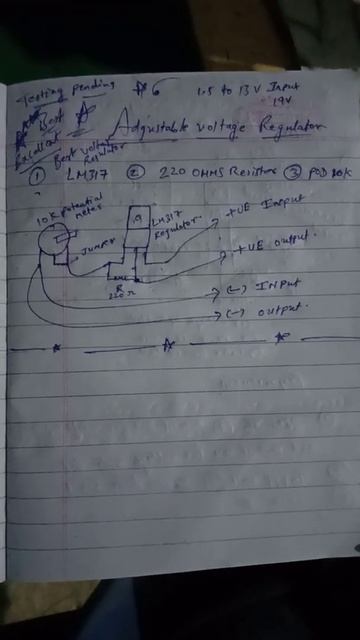 Testing pending #6 1.5 to 13V Input
19V
Best
Excellent
Best voltage Regulator
Adjustable voltage Regulator
① LM317 ② 220 OHMS Resistor ③ POD 10k
10K Potential meter
LM317 Regulator
+VE Input
JUMPER
+VE output
R
220Ω
(-) INPUT
(-) output